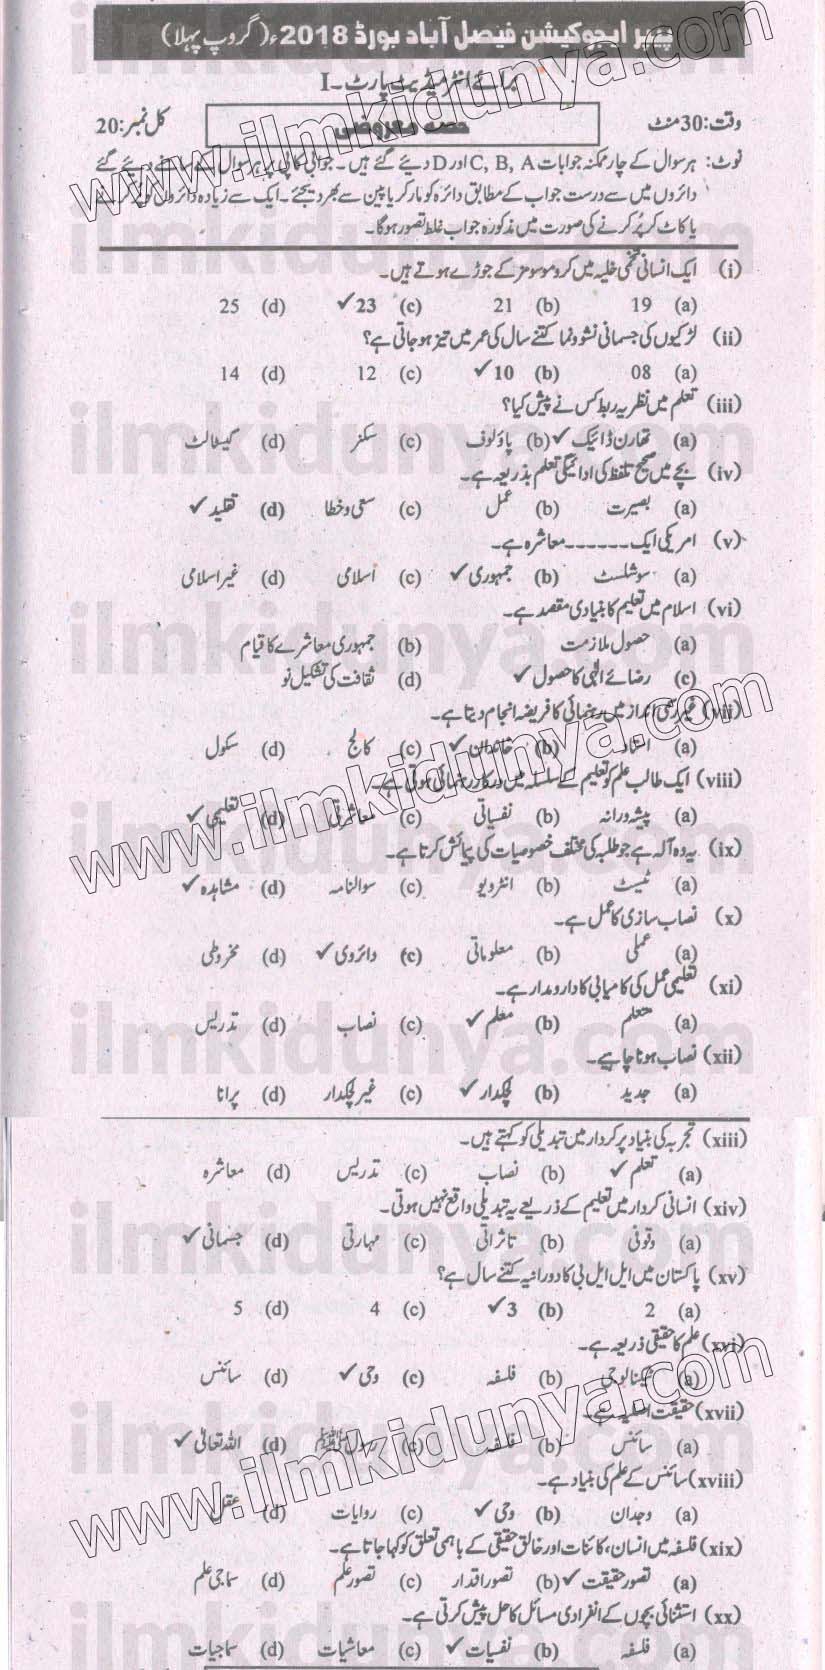 پیپر ایجوکیشن فیصل آباد بورڈ 2018ء (گروپ پہلا)
برائے انٹرمیڈیٹ پارٹ-I
وقت:30 منٹ حصہ معروضی کل نمبر:20
نوٹ: ہر سوال کے چار ممکنہ جوابات C, B, A اور D دیے گئے ہیں۔ جوابی کاپی پر ہر سوال کے سامنے دیے گئے
دائروں میں سے درست جواب کے مطابق دائرہ کو مارکر یا پین سے بھر دیجئے۔ ایک سے زیادہ دائروں کو پُر کرنے
یا کاٹ کر پُر کرنے کی صورت میں مذکورہ جواب غلط تصور ہوگا۔
(i) ایک انسانی تخمی خلیہ میں کروموسومز کے جوڑے ہوتے ہیں۔
(a) 19 (b) 21 (c) 23✓ (d) 25
(ii) لڑکیوں کی جسمانی نشوونما کتنے سال کی عمر میں تیز ہو جاتی ہے؟
(a) 08 (b) 10✓ (c) 12 (d) 14
(iii) تعلم میں نظریہ ربط کس نے پیش کیا؟
(a) تھارن ڈائیک✓ (b) پاؤلوف (c) سکنر (d) گیسٹالٹ
(iv) بچے میں صحیح تلفظ کی ادائیگی تعلم بذریعہ ہے۔
(a) بصیرت (b) عمل (c) سعی و خطا (d) تقلید✓
(v) امریکی ایک ------ معاشرہ ہے۔
(a) سوشلسٹ (b) جمہوری✓ (c) اسلامی (d) غیر اسلامی
(vi) اسلام میں تعلیم کا بنیادی مقصد ہے۔
(a) حصول ملازمت (b) جمہوری معاشرے کا قیام
(c) رضائے الٰہی کا حصول✓ (d) ثقافت کی تشکیل نو
(vii) غیر رسمی انداز میں رہنمائی کا فریضہ انجام دیتا ہے۔
(a) استاد (b) خاندان✓ (c) کالج (d) سکول
(viii) ایک طالب علم کو تعلیم کے سلسلہ میں درکار رہنمائی ہوتی ہے۔
(a) پیشہ ورانہ (b) نفسیاتی (c) معاشرتی (d) تعلیمی✓
(ix) یہ وہ آلہ ہے جو طلبہ کی مختلف خصوصیات کی پیمائش کرتا ہے۔
(a) ٹیسٹ (b) انٹرویو (c) سوالنامہ (d) مشاہدہ✓
(x) نصاب سازی کا عمل ہے۔
(a) عملی (b) معلوماتی (c) دائروی✓ (d) مخروطی
(xi) تعلیمی عمل کی کامیابی کا دارومدار ہے۔
(a) متعلم (b) معلم✓ (c) نصاب (d) تدریس
(xii) نصاب ہونا چاہیے۔
(a) جدید (b) لچکدار✓ (c) غیر لچکدار (d) پرانا
(xiii) تجربہ کی بنیاد پر کردار میں تبدیلی کو کہتے ہیں۔
(a) تعلم✓ (b) نصاب (c) تدریس (d) معاشرہ
(xiv) انسانی کردار میں تعلیم کے ذریعے یہ تبدیلی واقع نہیں ہوتی۔
(a) وقوفی (b) تاثراتی (c) مہارتی (d) جسمانی✓
(xv) پاکستان میں ایل ایل بی کا دورانیہ کتنے سال ہے؟
(a) 2 (b) 3✓ (c) 4 (d) 5
(xvi) علم کا حقیقی ذریعہ ہے۔
(a) ٹیکنالوجی (b) فلسفہ (c) وحی✓ (d) سائنس
(xvii) حقیقت اصلیہ ہے۔
(a) سائنس (b) فلسفہ (c) رسولﷺ (d) اللہ تعالیٰ✓
(xviii) سائنس کے علم کی بنیاد ہے۔
(a) وجدان (b) وحی✓ (c) روایات (d) عقل
(xix) فلسفہ میں انسان، کائنات اور خالق حقیقی کے باہمی تعلق کو کہا جاتا ہے۔
(a) تصور حقیقت✓ (b) تصور اقدار (c) تصور علم (d) سماجی علم
(xx) استثنائی بچوں کے انفرادی مسائل کا حل پیش کرتی ہے۔
(a) فلسفہ (b) نفسیات✓ (c) معاشیات (d) سماجیات
www.ilmkidunya.com
www.ilmkidunya.com
www.ilmkidunya.com
ilmkidunya.com
ilmkidunya.com
ilmkidunya.com
ilmkidunya.com
ilmkidunya.com
ilmkidunya.com
ilmkidunya.com
ilmkidunya.com
ilmkidunya.com